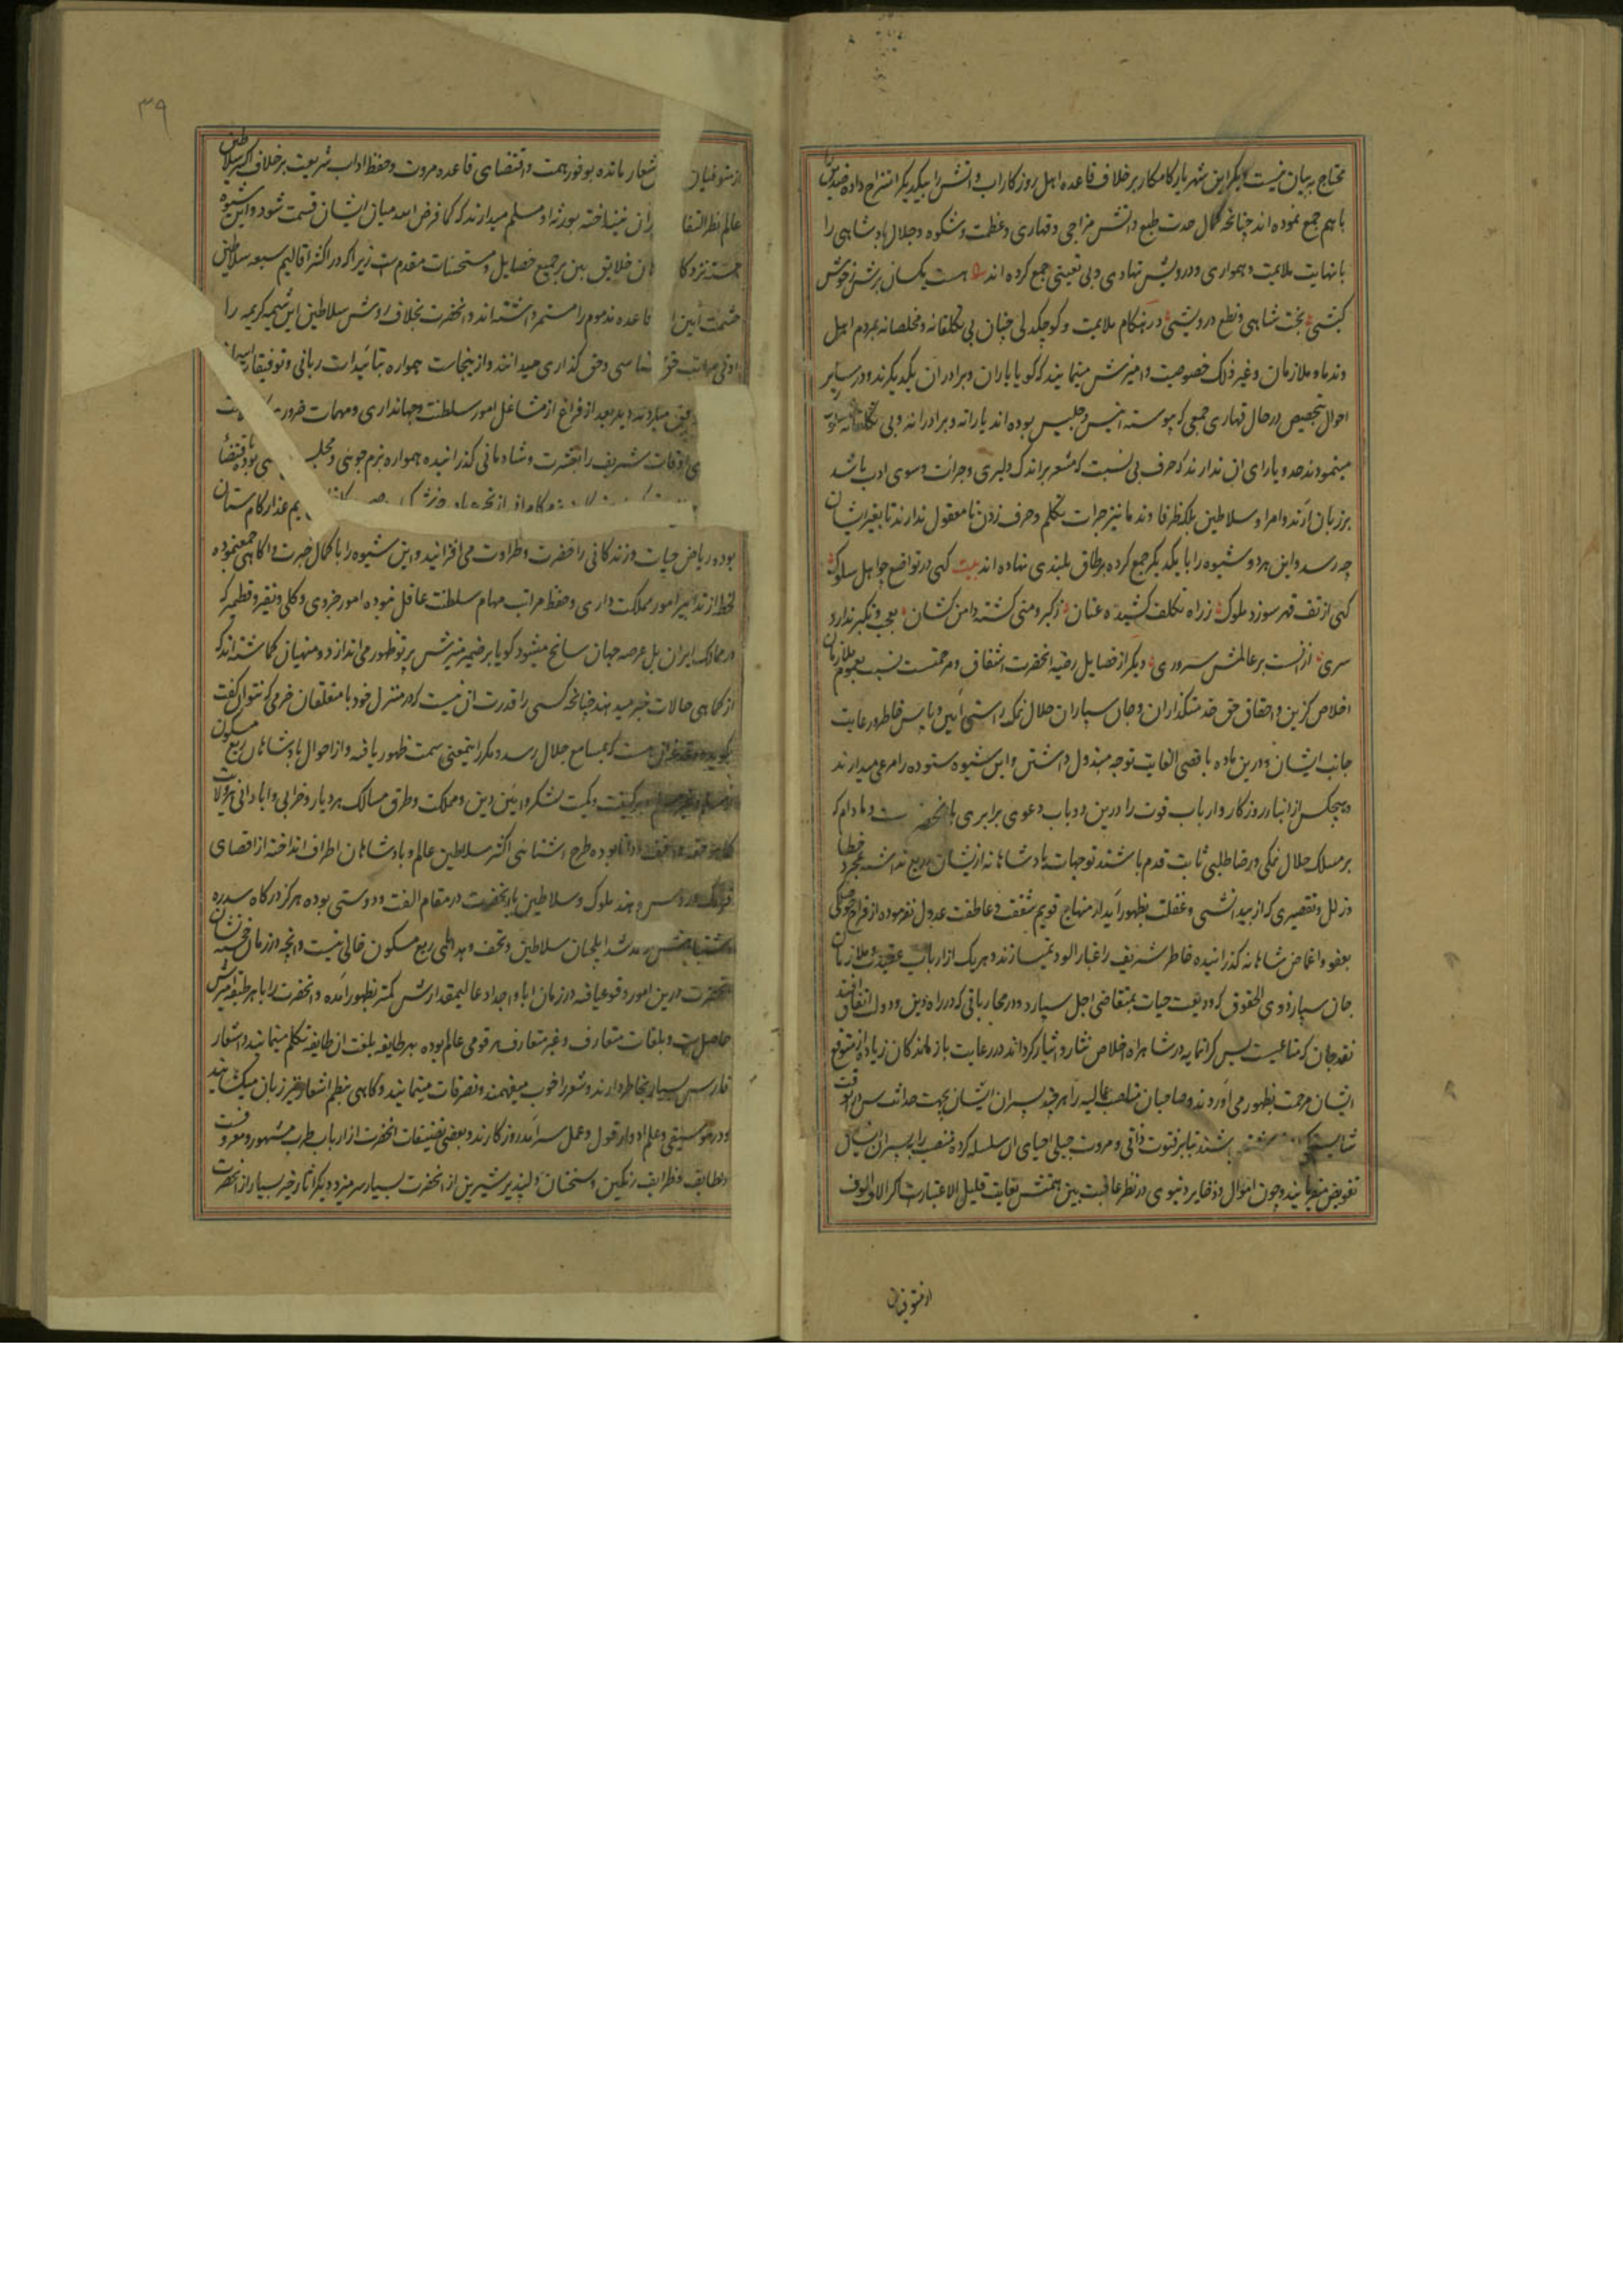 محتاج به بیان نیست دیگر این شهریار کامکار برخلاف قاعده اهل روزکار اب و اتش را بیکدیکر امتزاج داده ضدین
با هم جمع نموده اند چنانچه کمال حدت طبع و اتش مزاجی و قهاری و عظمت و شکوه و جلال پادشاهی را
با نهایت ملایمت و همواری و درویش نهادی و بی تعینی جمع کرده اند هست یکسان برش ز خوش
کیشی تخت شاهی و نطع درویشی در هنکام ملایمت و کوچکدلی چنان بی تکلفانه و مخلصانه بمردم اهل
و ندما و ملازمان و غیر ذلک خصوصیت و امیزش مینمایند که کویا یاران و برادران یکدیکرند و در سایر
احوال بتخصیص در حال قهاری جمعی که پیوسته انیس و جلیس بوده اند یارانه و برادرانه و بی تکلفانه
مینمودند حد و یارای ان ندارند که حرف بی نسبت که مشعر بر اندک دلیری و جرات و سوی ادب باشد
بر زبان ارند و امرا و سلاطین بلکه ظرفا و ندما نیز جرات تکلم و حرف زدن نا معقول ندارند تا بغیر ایشان
چه رسد و این هر دو شیوه را با یکدیکر جمع کرده بر طاق بلندی نهاده اند بیت کهی در تواضع چو اهل سلوک
کهی از تف قهر سوزد ملوک ز راه تکلف کشیده عنان ز کبر و منی کشته دامن کشان بعجب و تکبر ندارد
سری از انست بر عالمش سروری دیکر از فضایل رضیه انحضرت اشفاق و مرحمتست نسبت بعموم ملازمان
اخلاص کزین و احقاق حق خدمتکذاران و جان سپاران حلال نمک راستی ایین و پاس خاطر و رعایت
جانب ایشان و درین ماده باقصی الغایت توجه مبذول داشتن و این شیوه ستوده را مرعی میدارند
و هیچکس از ابناء روزکار و ارباب قوت را درین دو باب دعوی برابری با انحضرت و مادام که
بر مسلک حلال نمکی و رضا طلبی ثابت قدم باشند توجهات پادشاهانه از یشان دریغ نداشته بمجرد خطا
و زلل و تقصیری که از بیدانشی و غفلت بظهور آید از منهاج قویم شفقت و عاطفت عدول نفرموده از فراخ حوصلکی
بعفو و اغماض شاهانه کذرانیده خاطر شریف را غبار الود نمیسازند و هر یک از ارباب عقیدت و ملازمان
جان سپار ذوی الحقوق که ودیعت حیات بمتقاضی اجل سپارد و در محارباتی که در راه دین و دولت اتفاق افتد
نقد جان که متاعیست بس کرانمایه در شاهراه اخلاص نثار و ایثار کرده اند در رعایت بازماندکان زیاده از متوقع
ایشان مرحمت بظهور می آورند و صاحبان مناصب عالیه را هر چند پسران ایشان بجهت حداثت سن در انوقت
شایسته نباشند بنابر فتوت ذاتی و مروت جبلی احیای ان سلسله کرده منصب را به پسران ایشان
تفویض میفرمایند و چون اموال و ذخایر دنیوی در نظر عاقبت بین همتش بغایت قلیل الاعتبارست اکر الاف الوف
از متوفیان
۳۹
از متوفیان شعار مانده بوفور همت و اقتضای قاعده مروت و حفظ اداب شریعت برخلاف اکثر سلاطین
عالم نظر التفا ران نینداخته بورثه او مسلم میدارند که کما فرض الله میان ایشان قسمت شود و این شیوه
خجسته نزد کا هان خلایق بین بر جمیع خصایل و مستحسنات مقدم است زیرا که در اکثر اقالیم سبعه سلاطین
حشمت ایین قاعده مذموم را مستمر داشته اند و انحضرت بخلاف روش سلاطین این شیمه کریمه را
ادنی مراتب حق شناسی و حق کذاری میدانند و ازینجاست همواره بتائیدات ربانی و توفیقات
بعد از فراغ از مشاغل امور سلطنت و جهانداری و مهمات ضرور
اوقات شریف را بعشرت و شادمانی کذرانیده همواره بزم جوینی و مجلس بوده باقتضا
یم عذار کام ستان
بوده ریاض حیات و زندکانی را خضرت و طراوت می افزانید و این شیوه را با کمال خبرت و اکاهی جمع نموده
لحظه از تدابیر امور مملکت داری و حفظ مراتب مهام سلطنت غافل نبوده امور جزوی و کلی و نقیر و قطمیر که
در ممالک ایران بل عرصه جهان سانح میشود کویا بر ضمیر منیرش پرتو ظهور می اندازد و منهیان کماشته اند که
از کماهی حالات خبر میدهند چنانچه کسی را قدرت ان نیست که در منزل خود با متعلقان حرفی که نتوان کفت
بکوید و دغدغه ان هست که بمسامع جلال رسد و مکررا اینمعنی سمت ظهور یافته و از احوال پادشاهان ربع مسکون
کیفیت و کمیت لشکر و ایین دین و مملکت و طرق مسالک هر دیار و خرابی و ابادانی هر ولایت
بوده طرح اشنائی اکثر سلاطین عالم و پادشاهان اطراف انداخته از اقصای
فرنک و روس و هند ملوک و سلاطین با انحضرت در مقام الفت و دوستی بوده هرکز درکاه سدره
از آمد شد ایلچیان سلاطین و تحف و هدایای ربع مسکون خالی نیست و انچه در زمان خجسته نشان
انحضرت درین امور وقوع یافته در زمان ابا و اجداد عالیمقدارش کمتر بظهور آمده و انحضرت را با هر طبقه امیزش
حاصل است و بلغات متعارف و غیر متعارف هر قومی عالم بوده بهر طایفه بلغت ان طایفه تکلم مینمایند و اشعار
فارسی بسیار بخاطر دارند و شعر را خوب میفهمند و تصرفات مینمایند و کاهی بنظم اشعار نیز زبان میکشایند
و در موسیقی و علم ادوار و قول و عمل سرآمد روزکارند و بعضی تصنیفات انحضرت از ارباب طرب مشهور و معروفست
و لطایف و ظرایف رنکین و سخنان دلپذیر شیرین از انحضرت بسیار سر میزند و دیکر اثار خیر بسیار از انحضرت